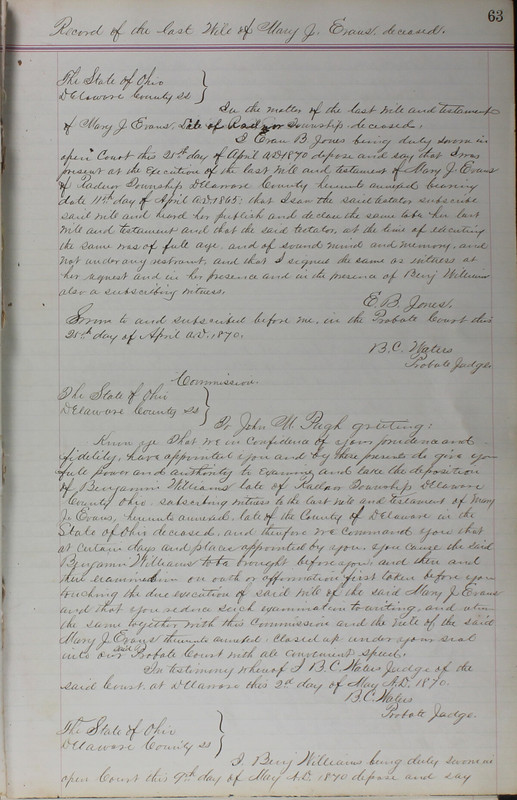 63
Record of the last Will of Mary J. Evans, deceased.
The State of Ohio
Delaware County ss
In the matter of the last will and testament
of Mary J. Evans, late of Radnor Township deceased.
I Evan B. Jones being duly sworn in
open Court this 25th day of April A.D. 1870 depose and say that I was
present at the Execution of the last will and testament of Mary J. Evans
of Radnor Township Delaware County hereunto annexed bearing
date 11th day of April A.D. 1865; that I saw the said testator subscribe
said will and heard her publish and declare the same to be her last
will and testament and that the said testator, at the time of executing
the same was of full age, and of sound mind and memory, and
not under any restraint, and that I signed the same as witness at
her request and in her presence and in the presence of Benj Williams
also a subscribing witness.
E. B. Jones.
Sworn to and subscribed before me, in the Probate Court this
25th day of April A.D. 1870.
B.C. Waters
Probate Judge.
Commission.
The State of Ohio
Delaware County ss
To John M Pugh greeting:
Know ye That we in confidence of your prudence and
fidelity, have appointed you and by these presents do give you
full power and authority to Examine and take the deposition
of Benjamin Williams late of Radnor Township Delaware
County Ohio. subscribing witness to the last will and testament of Mary
J. Evans, hereunto annexed, late of the County of Delaware in the
State of Ohio deceased, and therefore we command you that
at certain days and places appointed by you, you cause the said
Benjamin Williams to be brought before you, and then and
there examination on oath or affirmation first taken before you
touching the due execution of said will of the said Mary J. Evans
and that you reduce such examination to writing, and return
the same together with this Commission and the will of the said
Mary J. Evans thereunto annexed. closed up under your seal
into our said Probate Court with all convenient speed.
In testimony whereof I B.C. Waters Judge of the
said Court at Delaware this 2d day of May A.D. 1870.
B.C. Waters
Probate Judge.
The State of Ohio
Delaware County ss
I, Benj Williams being duly sworn in
open Court this 9th day of May A.D. 1870 depose and say